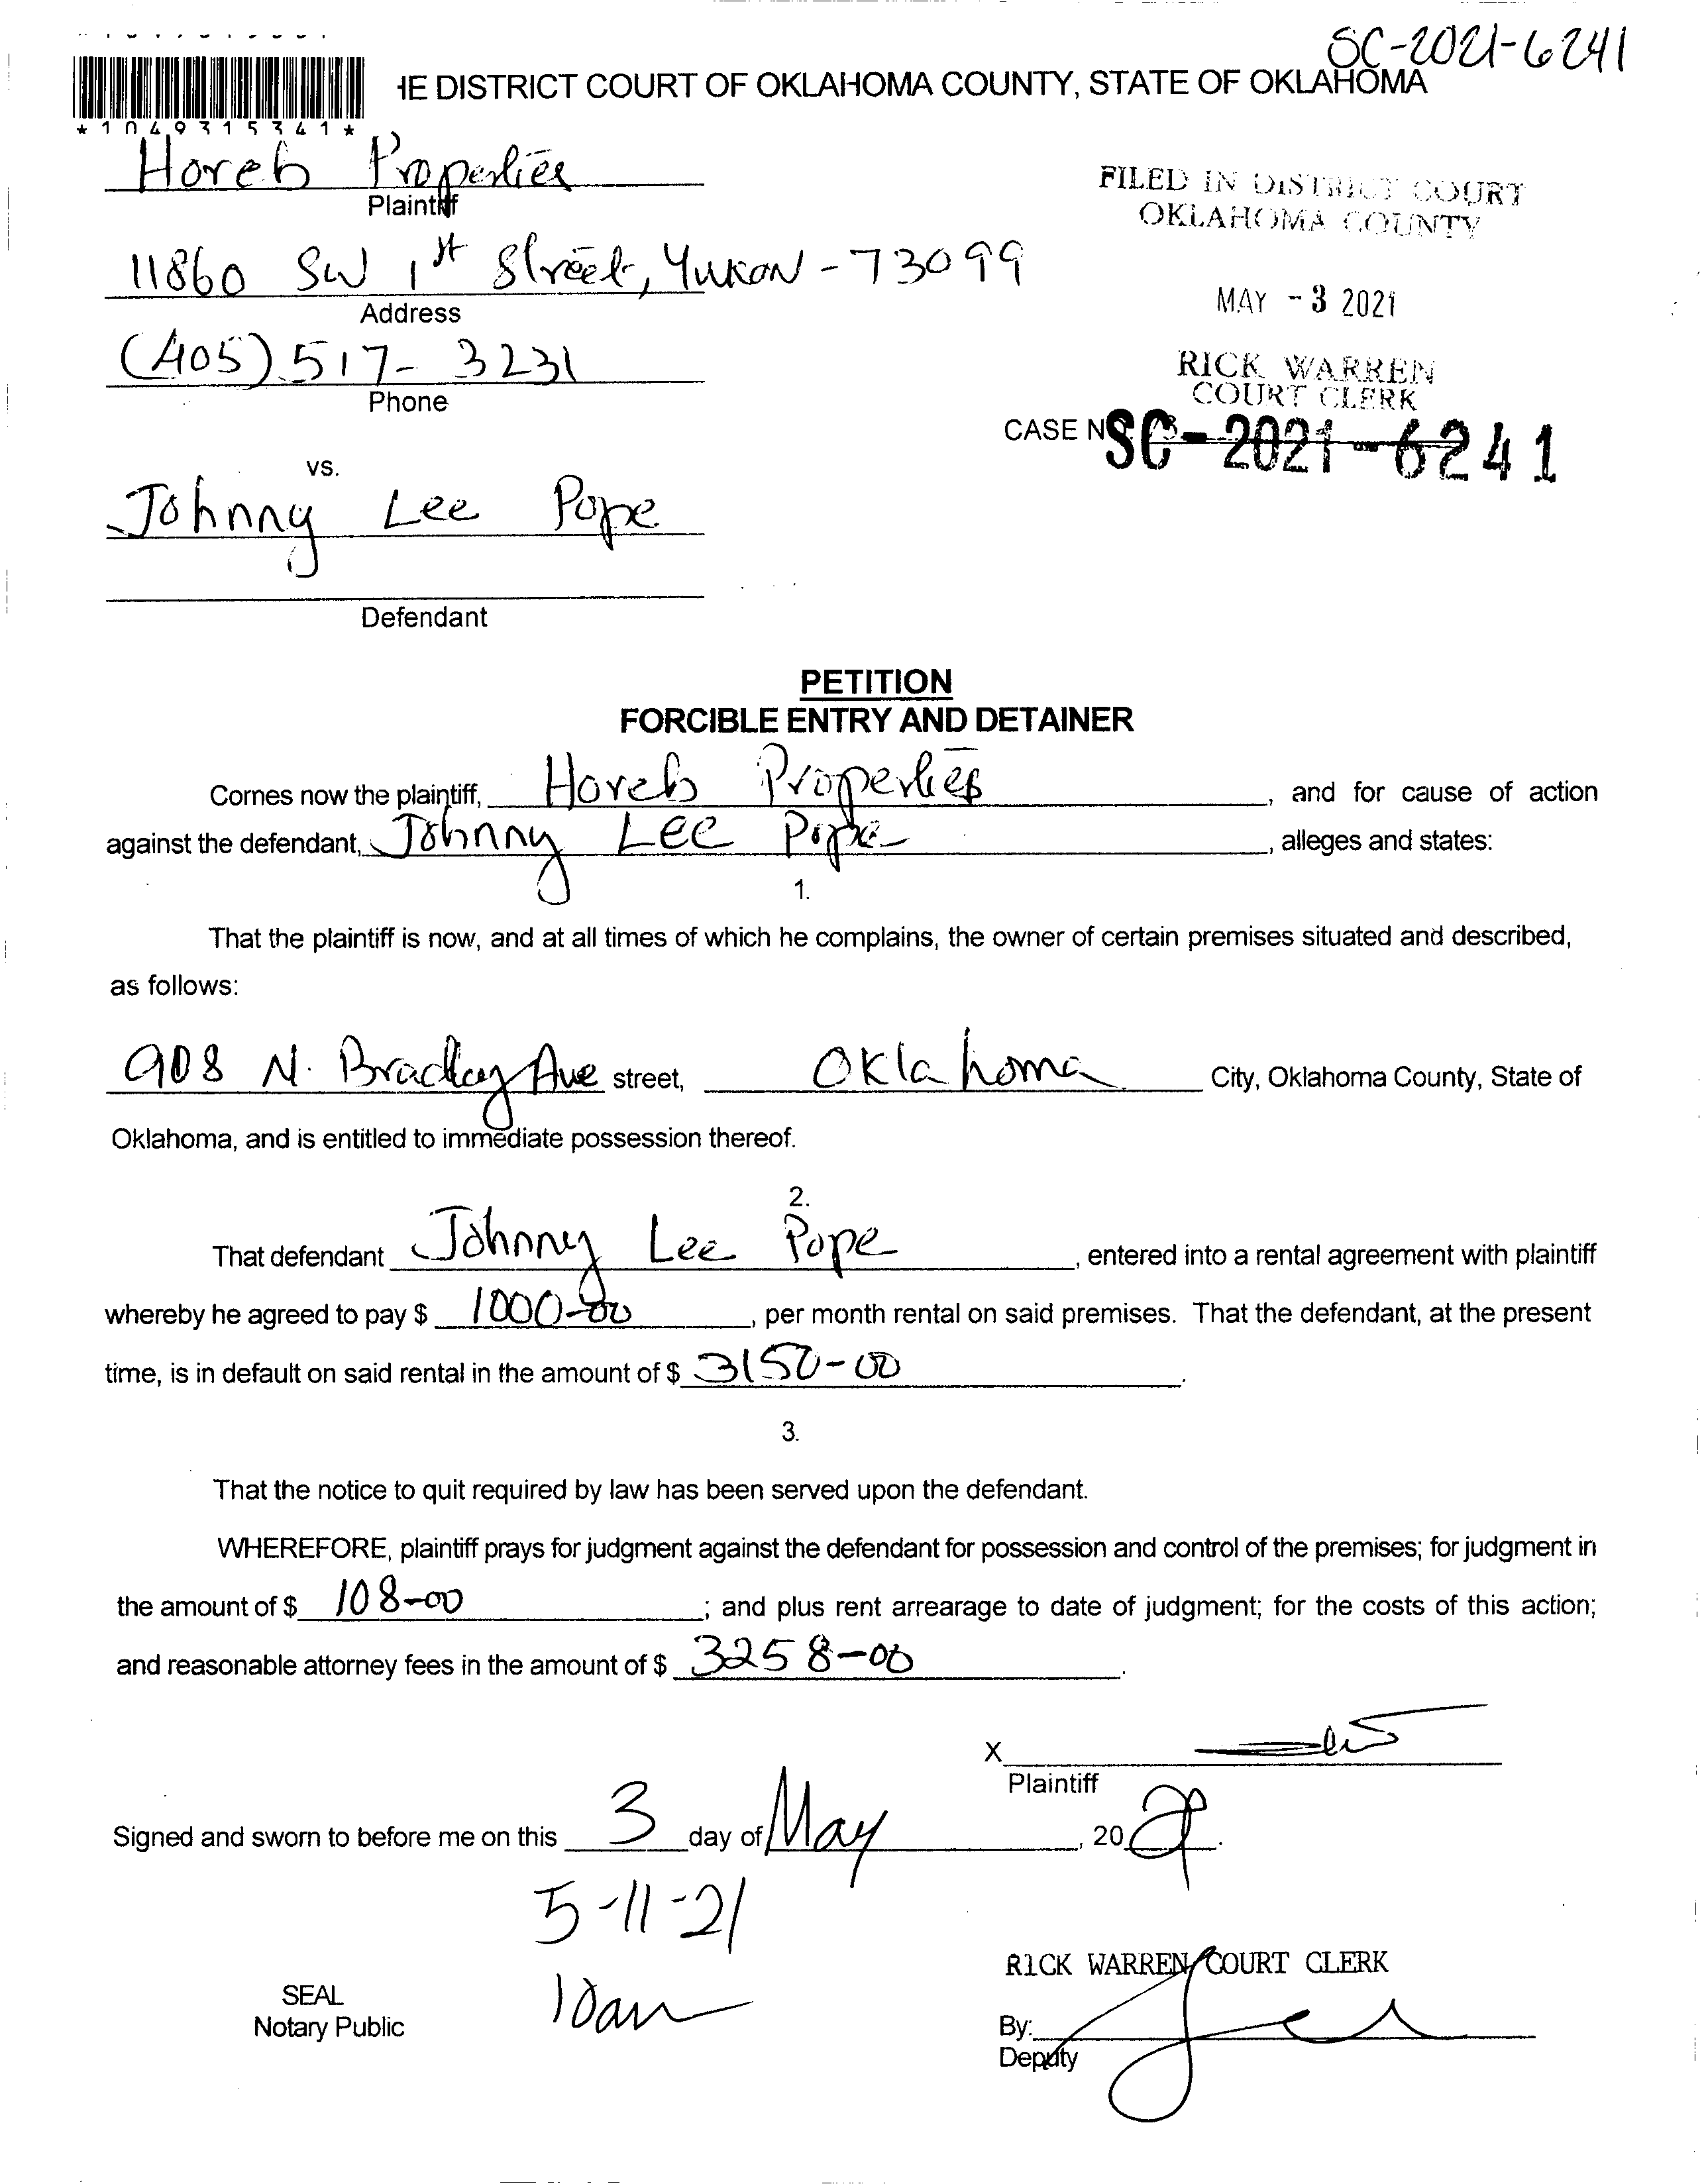 SC-2021-6241
HE DISTRICT COURT OF OKLAHOMA COUNTY, STATE OF OKLAHOMA
*1049315341*
Horeb Properties
Plaintiff
FILED IN DISTRICT COURT
OKLAHOMA COUNTY
11860 SW 1st Street, Yukon - 73099
Address
MAY - 3 2021
(405) 517- 3231
Phone
RICK WARREN
COURT CLERK
CASE NO. SC-2021-6241
vs.
Johnny Lee Pope
Defendant
PETITION
FORCIBLE ENTRY AND DETAINER
Comes now the plaintiff, Horeb Properties, and for cause of action
against the defendant, Johnny Lee Pope, alleges and states:
1.
That the plaintiff is now, and at all times of which he complains, the owner of certain premises situated and described,
as follows:
908 N. Bradley Ave street, Oklahoma City, Oklahoma County, State of
Oklahoma, and is entitled to immediate possession thereof.
2.
That defendant Johnny Lee Pope, entered into a rental agreement with plaintiff
whereby he agreed to pay $ 1000-00, per month rental on said premises. That the defendant, at the present
time, is in default on said rental in the amount of $ 3150-00.
3.
That the notice to quit required by law has been served upon the defendant.
WHEREFORE, plaintiff prays for judgment against the defendant for possession and control of the premises; for judgment in
the amount of $ 108-00; and plus rent arrearage to date of judgment; for the costs of this action;
and reasonable attorney fees in the amount of $ 3258-00.
X
Plaintiff
Signed and sworn to before me on this 3 day of May, 2021.
5-11-21
10am
RICK WARREN, COURT CLERK
SEAL
Notary Public
By:
Deputy